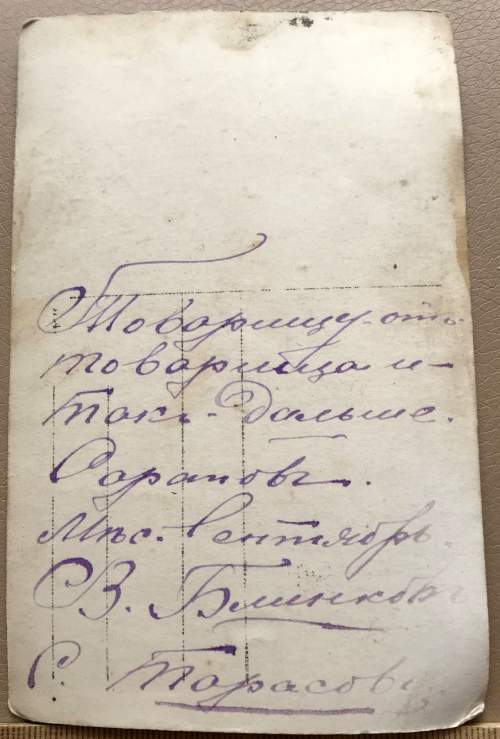 Товарищу-отъ
товарища и-
такъ-дальше.
Саратовъ.
Мѣс. Сентябрь.
В. Блинковъ
С. Тарасову